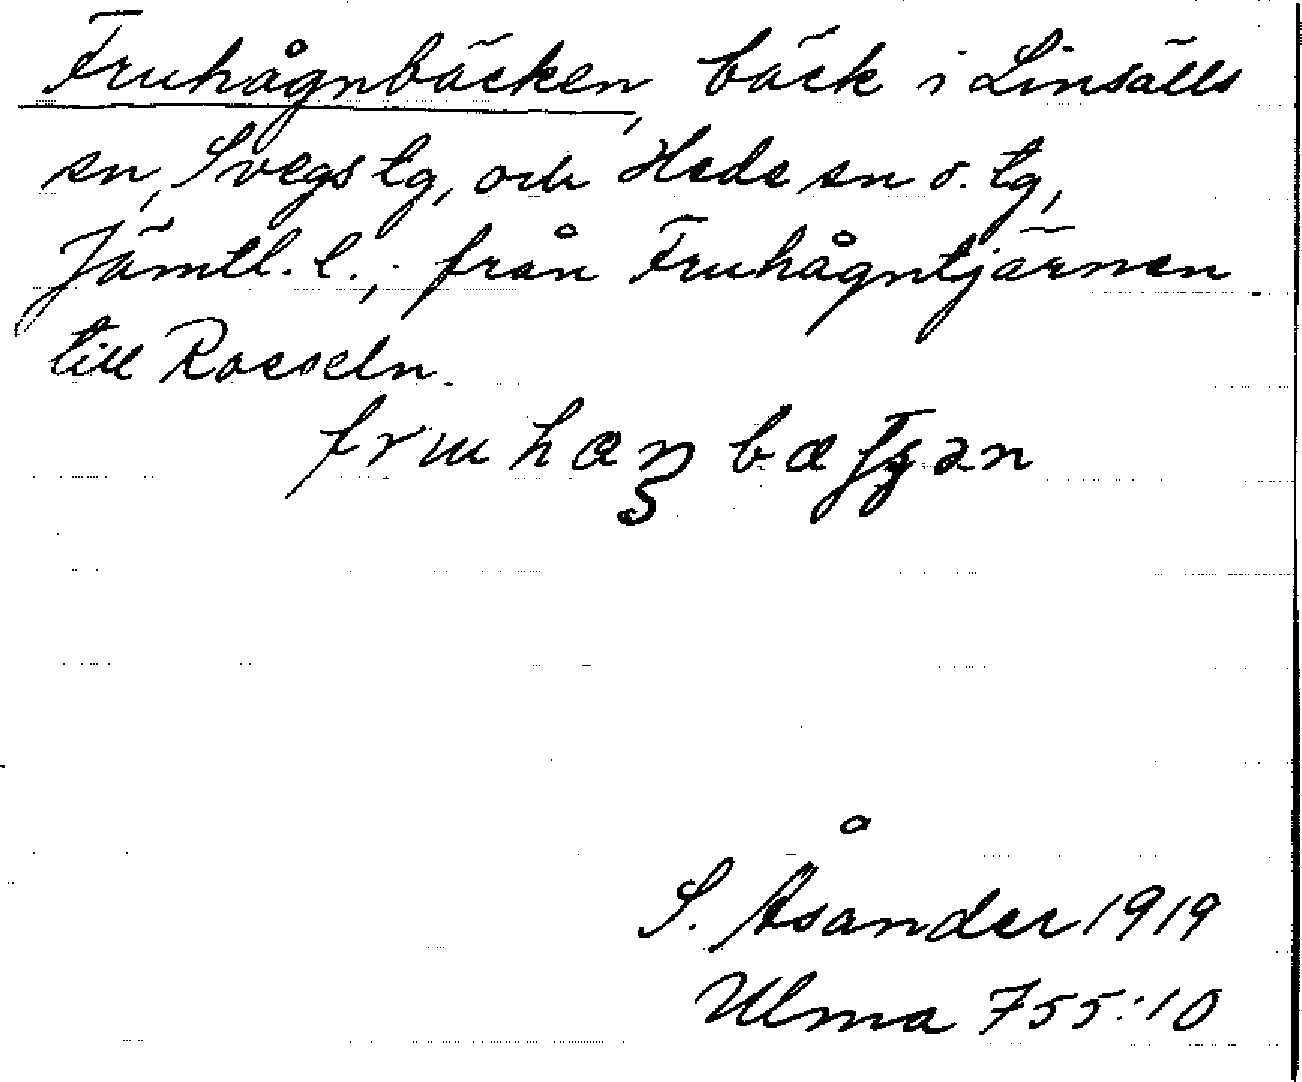 Fruhågnbäcken, bäck i Linsälls
sn, Svegs tg, och Hede sn o. tg,
Jämtl. l.; från Fruhågntjärnen
till Rosseln.
S. Åsander 1919
Ulma 755:10